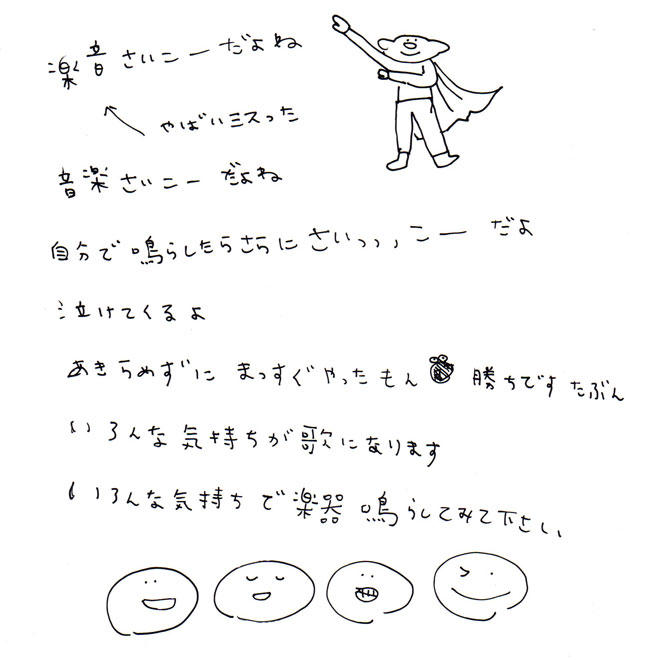 楽音さいこーだよね
やばいミスった
音楽さいこーだよね
自分で鳴らしたらさらにさいっっ,こーだよ
泣けてくるよ
あきらめずにまっすぐやったもん勝ちですたぶん
いろんな気持ちが歌になります
いろんな気持ちで楽器鳴らしてみて下さい